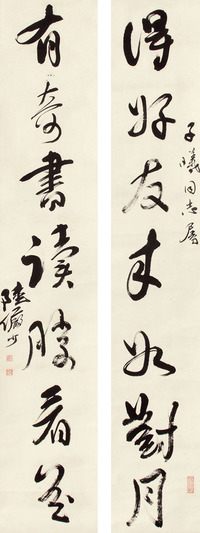 得好友来如對月
子曦同志屬
有奇書讀勝看花
陸儼少